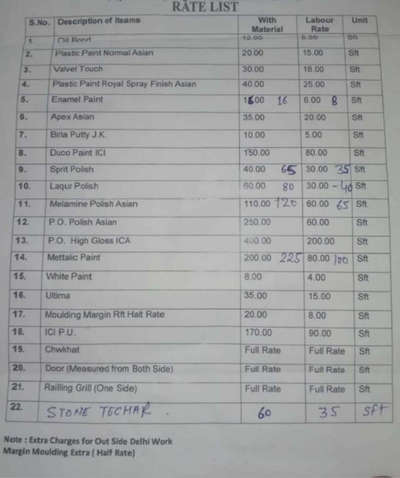 RATE LIST
S.No. Description of Iteams With Material Labour Rate Unit
1. Oil Bond 12.00 Sft
2. Plastic Paint Normal Asian 20.00 15.00 Sft
3. Valvet Touch 30.00 18.00 Sft
4. Plastic Paint Royal Spray Finish Asian 40.00 25.00 Sft
5. Enamel Paint 16 6.00 8 Sft
6. Apex Asian 35.00 20.00 Sft
7. Birla Putty J.K. 10.00 5.00 Sft
8. Duco Paint ICI 150.00 80.00 Sft
9. Sprit Polish 40.00 65 30.00 35 Sft
10. Laqur Polish 60.00 80 30.00 - 40 Sft
11. Melamine Polish Asian 110.00 120 60.00 65 Sft
12. P.O. Polish Asian 250.00 60.00 Sft
13. P.O. High Gloss ICA 400.00 200.00 Sft
14. Mettalic Paint 200.00 225 80.00 100 Sft
15. White Paint 8.00 4.00 Sft
16. Ultima 35.00 15.00 Sft
17. Moulding Margin Rft Half Rate 20.00 8.00 Sft
18. ICI P.U. 170.00 90.00 Sft
19. Chwkhat Full Rate Full Rate Sft
20. Door (Measured from Both Side) Full Rate Full Rate Sft
21. Railling Grill (One Side) Full Rate Full Rate Sft
22. STONE TECHAR . 60 35 Sft
Note : Extra Charges for Out Side Delhi Work
Margin Moulding Extra ( Half Rate)